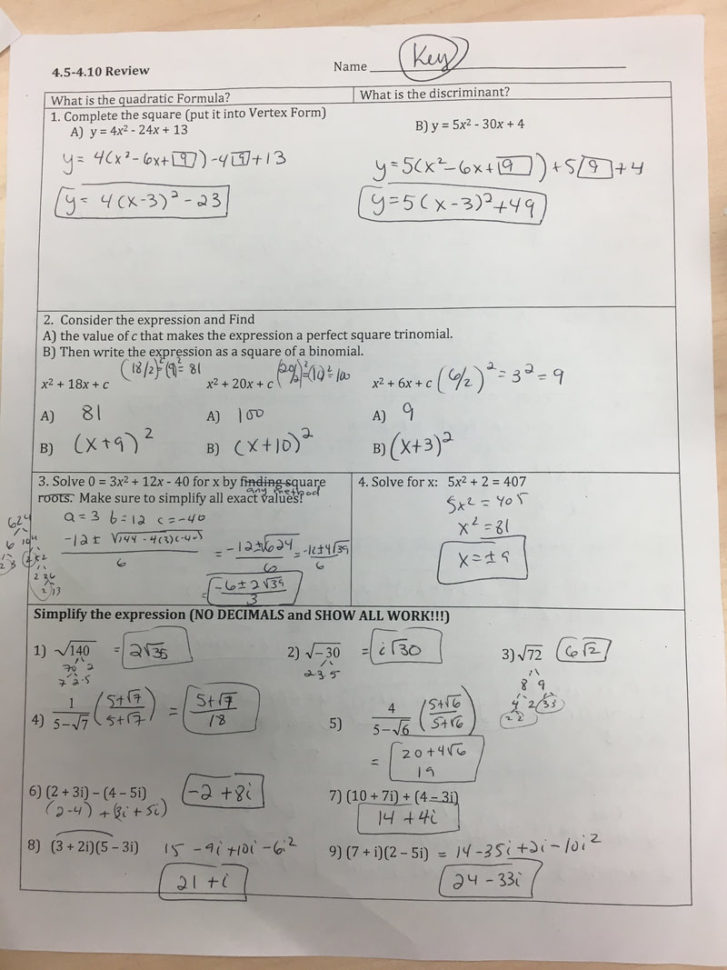 4.5-4.10 Review Name Key
What is the quadratic Formula? What is the discriminant?
1. Complete the square (put it into Vertex Form)
A) y = 4x² - 24x + 13 B) y = 5x² - 30x + 4
y = 4(x² - 6x + 9) - 4 9 + 13 y = 5(x² - 6x + 9) + 5 9 + 4
y = 4(x-3)² - 23 y = 5(x-3)² + 49
2. Consider the expression and Find
A) the value of c that makes the expression a perfect square trinomial.
B) Then write the expression as a square of a binomial.
x² + 18x + c (18/2)² = (9)² = 81 x² + 20x + c (20/2)² = (10)² = 100 x² + 6x + c (6/2)² = 3² = 9
A) 81 A) 100 A) 9
B) (x+9)² B) (x+10)² B) (x+3)²
3. Solve 0 = 3x² + 12x - 40 for x by finding square
roots. any method Make sure to simplify all exact values!
a = 3 b = 12 c = -40
-12 ± √144 - 4(3)(-40)
6
= -12 ± √624
6
= -12 ± 4√39
6
= -6 ± 2√39
3
624
6 104
2 3
2 13
4. Solve for x: 5x² + 2 = 407
5x² = 405
x² = 81
x = ± 9
Simplify the expression (NO DECIMALS and SHOW ALL WORK!!!)
1) √140 = 2√35 2) √-30 = i√30 3) √72 6√2
70 2 2 3 5 8 9
7 2·5 4 2 3 3
2 2
4) 1/(5-√7) (5+√7/5+√7) = 5+√7/18
5) 4/(5-√6) (5+√6/5+√6)
= 20+4√6/19
6) (2 + 3i) – (4 – 5i) -2 + 8i 7) (10 + 7i) + (4 – 3i)
(2-4) + (3i + 5i) 14 + 4i
8) (3 + 2i)(5 – 3i) 15 - 9i + 10i - 6i² 9) (7 + i)(2 – 5i) = 14 - 35i + 2i - 10i²
21 + i 24 - 33i